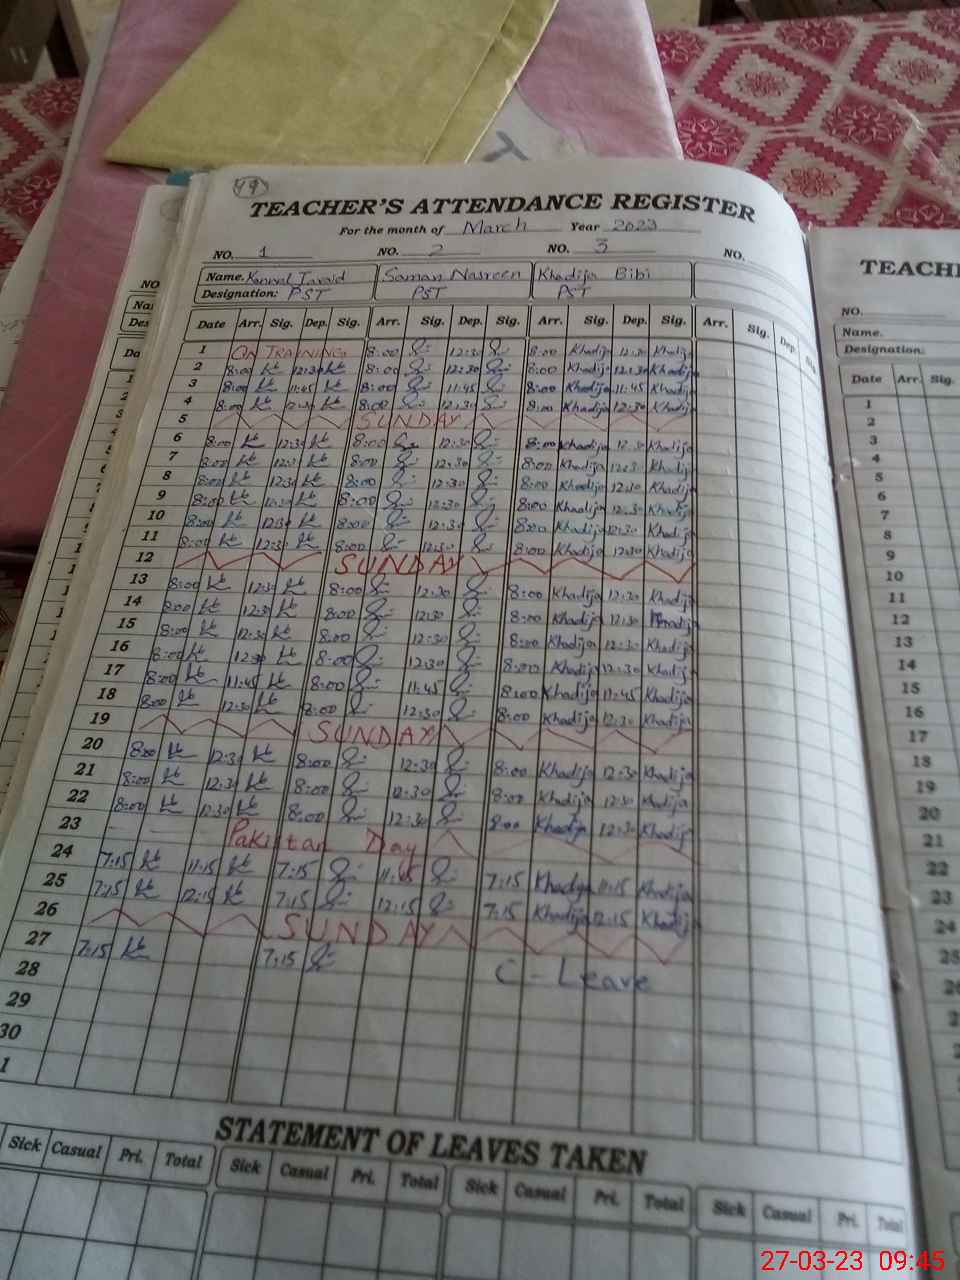 49
TEACHER'S ATTENDANCE REGISTER
For the month of March Year 2023
NO. 1 NO. 2 NO. 3 NO.
Name. Kanwal Javaid Saman Nasreen Khadija Bibi
Designation: PST PST PST
Date Arr. Sig. Dep. Sig. Arr. Sig. Dep. Sig. Arr. Sig. Dep. Sig. Arr. Sig. Dep.
1 ON TRAINING 8:00 12:30 8:00 Khadija 12:30 Khadija
2 8:00 12:30 8:00 12:30 8:00 Khadija 12:30 Khadija
3 8:00 11:45 8:00 11:45 8:00 Khadija 11:45 Khadija
4 8:00 12:30 8:00 12:30 8:00 Khadija 12:30 Khadija
5 SUNDAY
6 8:00 12:30 8:00 12:30 8:00 Khadija 12:30 Khadija
7 8:00 12:30 8:00 12:30 8:00 Khadija 12:30 Khadija
8 8:00 12:30 8:00 12:30 8:00 Khadija 12:30 Khadija
9 8:00 12:30 8:00 12:30 8:00 Khadija 12:30 Khadija
10 8:00 12:30 8:00 12:30 8:00 Khadija 12:30 Khadija
11 8:00 12:30 8:00 12:30 8:00 Khadija 12:30 Khadija
12 SUNDAY
13 8:00 12:30 8:00 12:30 8:00 Khadija 12:30 Khadija
14 8:00 12:30 8:00 12:30 8:00 Khadija 12:30 Khadija
15 8:00 12:30 8:00 12:30 8:00 Khadija 12:30 Khadija
16 8:00 12:30 8:00 12:30 8:00 Khadija 12:30 Khadija
17 8:00 11:45 8:00 11:45 8:00 Khadija 11:45 Khadija
18 8:00 12:30 8:00 12:30 8:00 Khadija 12:30 Khadija
19 SUNDAY
20 8:00 12:30 8:00 12:30 8:00 Khadija 12:30 Khadija
21 8:00 12:30 8:00 12:30 8:00 Khadija 12:30 Khadija
22 8:00 12:30 8:00 12:30 8:00 Khadija 12:30 Khadija
23 Pakistan Day
24 7:15 11:15 7:15 7:15 Khadija 11:15 Khadija
25 7:15 12:15 7:15 12:15 7:15 Khadija 12:15 Khadija
26 SUNDAY
27 7:15 7:15 C - Leave
28
29
30
1
STATEMENT OF LEAVES TAKEN
Sick Casual Pri. Total Sick Casual Pri. Total Sick Casual Pri. Total Sick Casual Pri. Total
TEACH
NO.
Name.
Designation:
Date Arr. Sig.
1
2
3
4
5
6
7
8
9
10
11
12
13
14
15
16
17
18
19
20
21
22
23
24
27-03-23 09:45